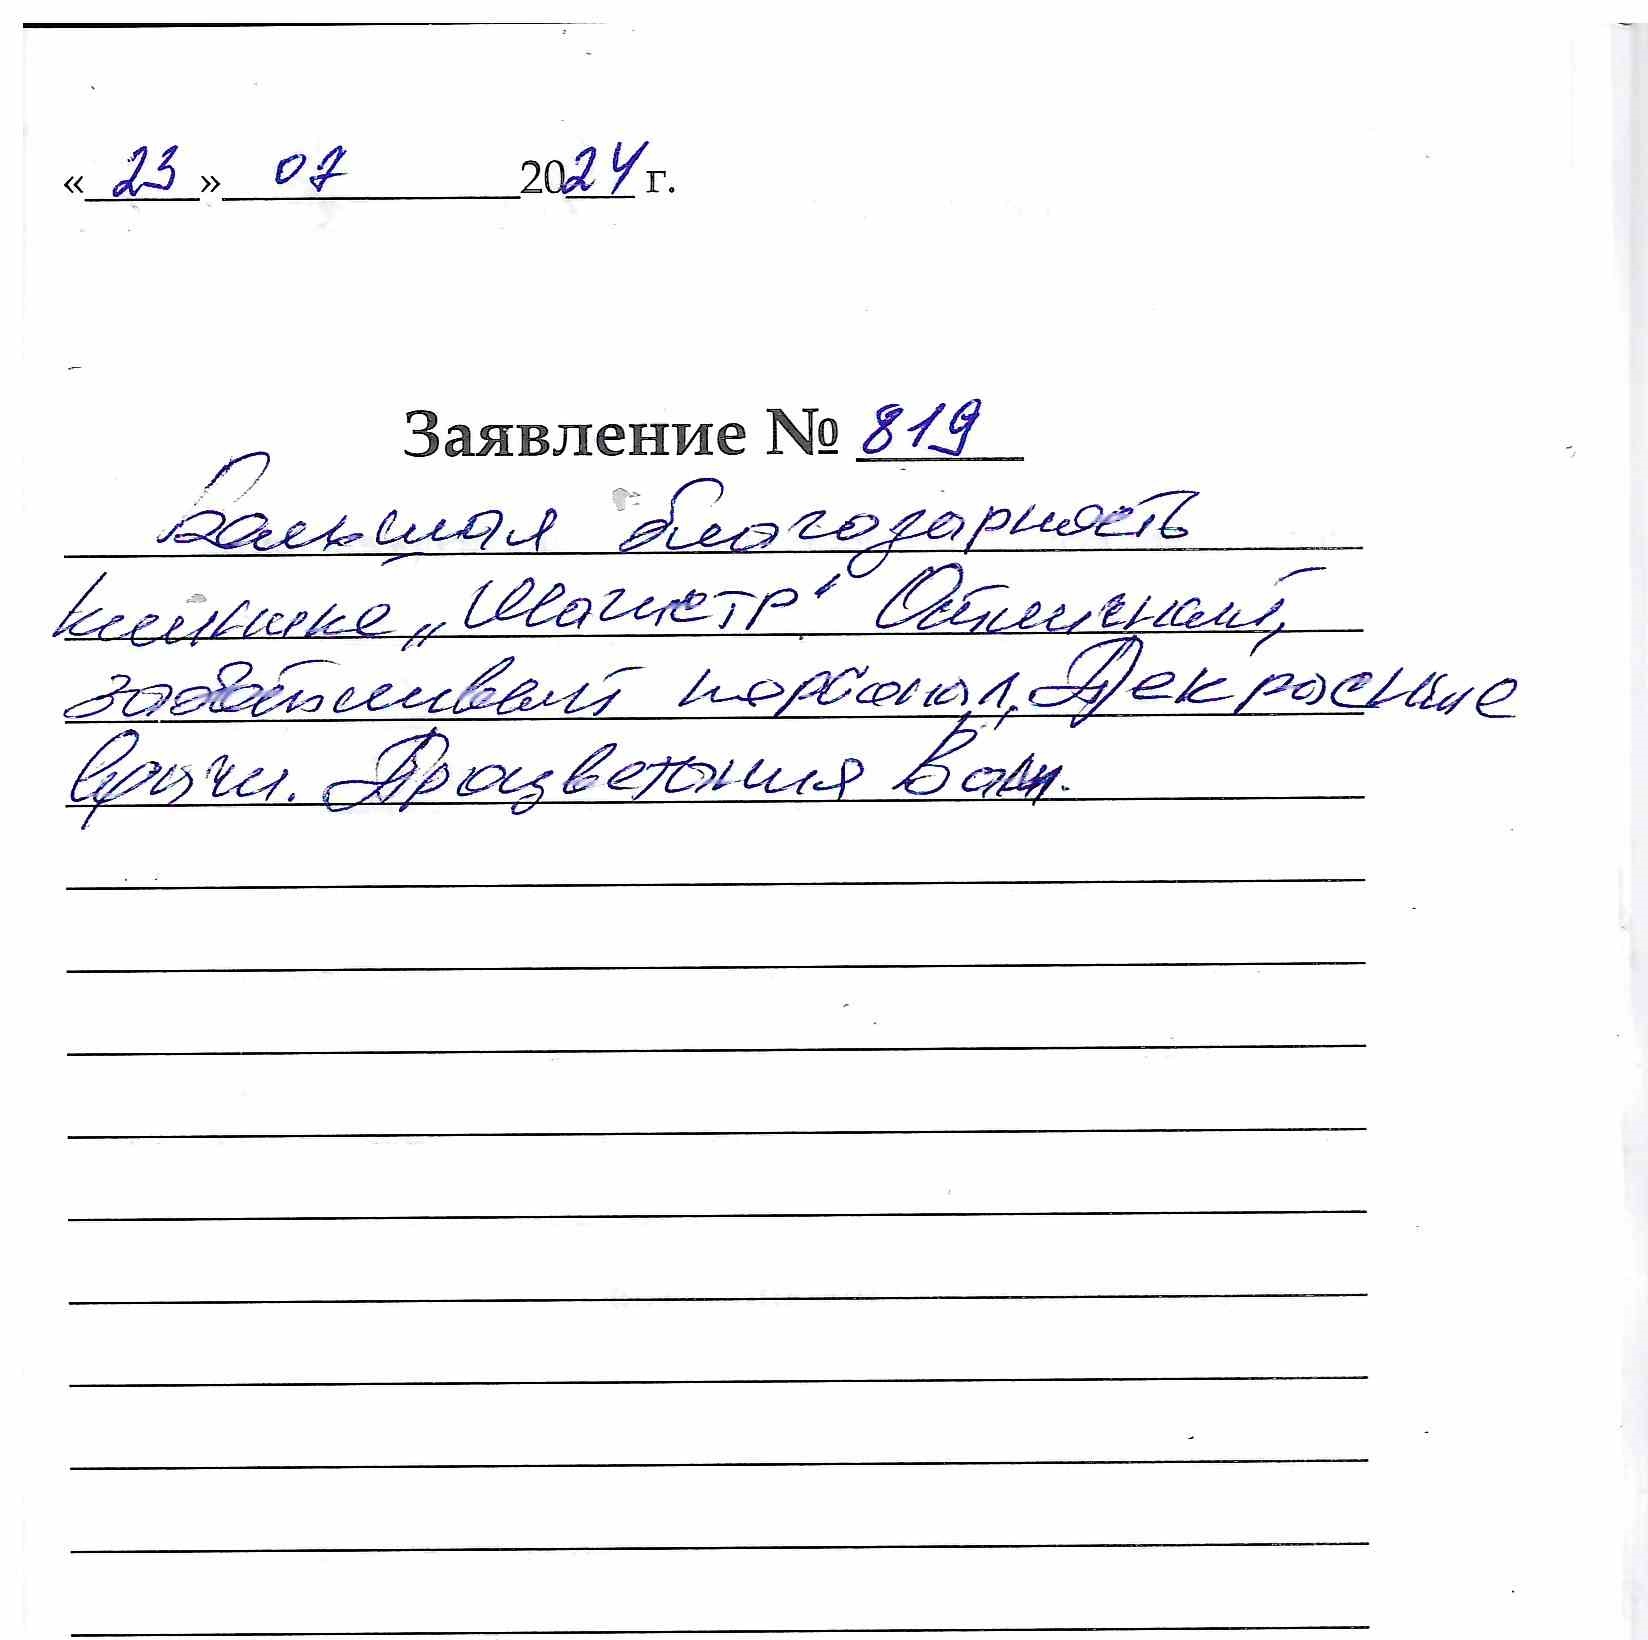 «23» 07 2024 г.
Заявление № 819
Большая благодарность
клинике „Магистр“ Отличный,
заботливый персонал, Прекрасные
врачи. Процветания Вам.